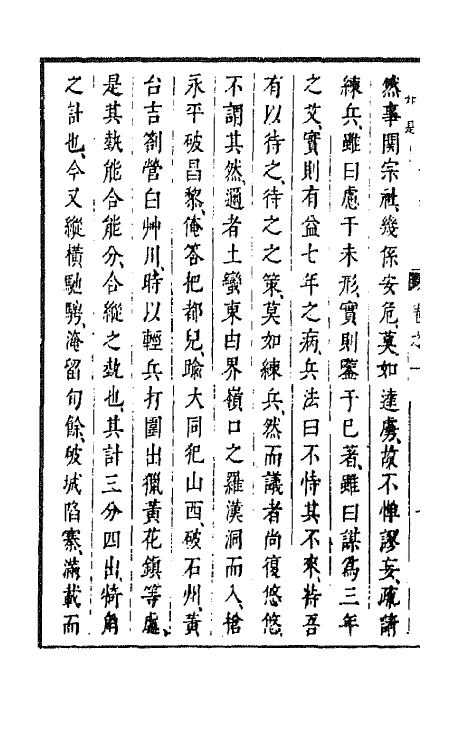 然事関宗社、幾係安危、莫如達虜、故不憚謬妄、疏請
練兵、雖曰慮于未形、實則鑒于已著、雖曰謀為三年
之艾、實則有益七年之病、兵法曰不恃其不來、恃吾
有以待之、待之之策、莫如練兵、然而議者尚復悠悠、
不謂其然、邇者土蠻東由界嶺口之羅漢洞而入、搶
永平破昌黎、俺答把都兒、踰大同犯山西、破石州、黃
台吉劄營白艸川、時以輕兵打圍出獵黃花鎮等處、
是其埶能合能分、合縱之埶也、其計三分四出、犄角
之計也、今又縱橫馳騁、淹留旬餘、破城陷寨、滿載而
卷之一